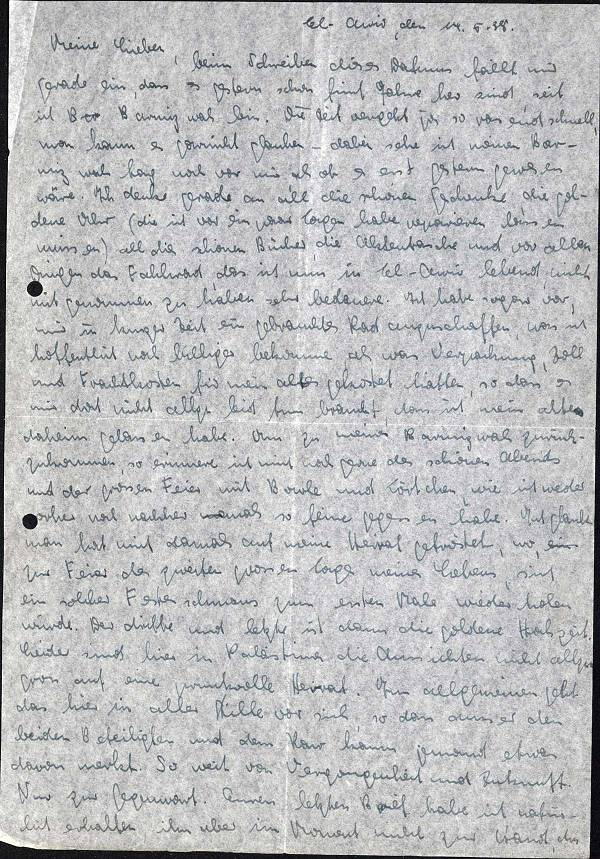 Tel-Awiw, den 14.5.38.
Meine Lieben,
beim Schreiben dieses Datums fällt mir
gerade ein, dass es gestern schon fünf Jahre her sind seit
ich Bar Mizwah bin. Die Zeit vergeht ja so rasend schnell,
man kann es garnicht glauben - dabei sehe ich meinen Bar-
mizwah tag noch vor mir als ob es erst gestern gewesen
wäre. Ich denke gerade an all die schönen Geschenke die gol-
dene Uhr (die ich vor ein paar Tagen habe reparieren lassen
müssen) all die schönen Bücher, die Aktentasche und vor allen
Dingen das Fahhrrad, das ich nun in Tel-Awiw lebend, nicht
mit genommen zu haben sehr bedauere. Ich habe sogar vor,
mir in kurzer Zeit ein gebrauchtes Rad anzuschaffen, was ich
hoffentlich noch billiger bekomme als was Verpackung, Zoll
und Frachtkosten für mein altes gekostet hätten, so dass es
mir dort nicht allzu leid tun braucht, dass ich mein altes
daheim gelassen habe. Um zu meiner Barmizwah zurück-
zukommen, so erinnere ich mich noch gerne des schönen Abends
und der grossen Feier mit Bowle und Törtchen wie ich weder
vorher noch nachher so feine gegessen habe. Ich glaube
man hat mich damals auf meine Heirat getröstet, wo,
zur Feier des zweiten grossen Tages meines Lebens, sich
ein solcher Festesschmaus zum ersten Male wieder holen
würde. Der dritte und letzte ist dann die goldene Hochzeit.
Leider sind hier in Palästina die Aussichten nicht allzu
gross auf eine prunkvolle Heirat. Im allgemeinen geht
das hier in aller Stille vor sich, so dass ausser den
beiden Beteiligten und dem Raw kaum jemand etwas
davon merkt. So weit von Vergangenheit und Zukunft.
Nun zur Gegenwart. Euren letzten Brief habe ich natür-
lich erhalten, ihn aber im Moment nicht zur Hand